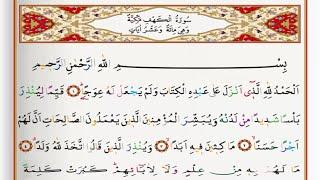 سُورَةُ الْكَهْفِ مَكِّيَّةٌ
وَهِيَ مِائَةٌ وَعَشْرُ اٰيَاتٍ
بِسْمِ اللّٰهِ الرَّحْمٰنِ الرَّحِيمِ
اَلْحَمْدُ لِلّٰهِ الَّذِٓي اَنْزَلَ عَلٰى عَبْدِهِ الْكِتَابَ وَلَمْ يَجْعَلْ لَهُ عِوَجًا ۞ قَيِّمًا لِيُنْذِرَ
بَأْسًا شَدِيدًا مِنْ لَدُنْهُ وَيُبَشِّرَ الْمُؤْمِنِينَ الَّذِينَ يَعْمَلُونَ الصَّالِحَاتِ اَنَّ لَهُمْ
اَجْرًا حَسَنًا ۞ مَاكِثِينَ فِيهِ اَبَدًا ۞ وَيُنْذِرَ الَّذِينَ قَالُوا اتَّخَذَ اللّٰهُ وَلَدًا ۞
مَا لَهُمْ بِهِ مِنْ عِلْمٍ وَلَا لِاٰبَٓائِهِمْ كَبُرَتْ كَلِمَةً